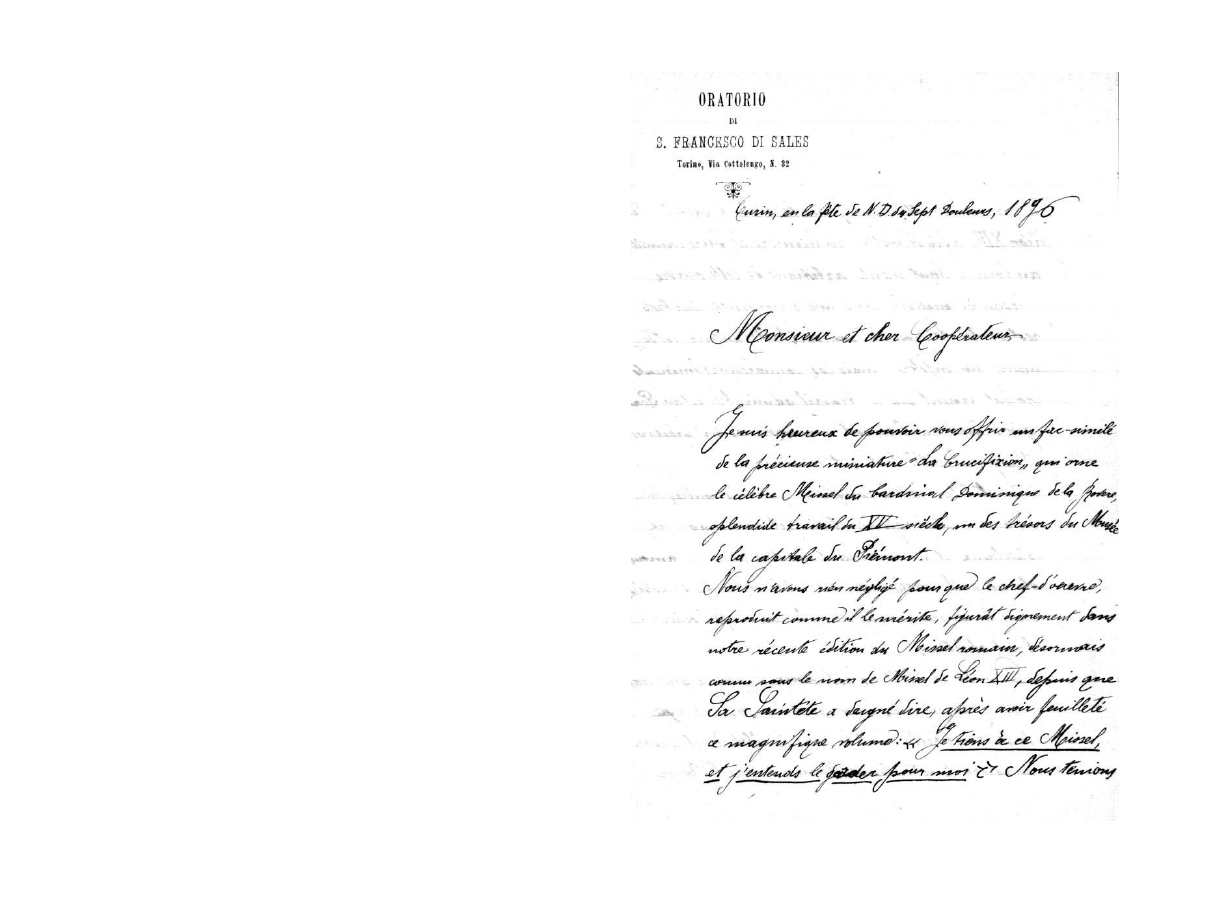 ORATORIO
DI
S. FRANCESCO DI SALES
Torino, Via Cottolengo, N. 32
Turin, en la fête de N. D. des Sept Douleurs, 1896
Monsieur et cher Coopérateur
Je suis heureux de pouvoir vous offrir un fac-similé
de la précieuse miniature "La Crucifixion„ qui orne
le célèbre Missel du Cardinal Dominique de la Rovere,
splendide travail du XV siècle, un des trésors du Musée
de la capitale du Piémont.
Nous n'avons rien négligé pour que le chef-d'œuvre,
reproduit comme il le mérite, figurât dignement dans
notre récente édition du Missel romain, désormais
connu sous le nom de Missel de Léon XIII, depuis que
Sa Sainteté a daigné dire, après avoir feuilleté
ce magnifique volume: « Je tiens à ce Missel,
et j'entends le garder pour moi » Nous tenions